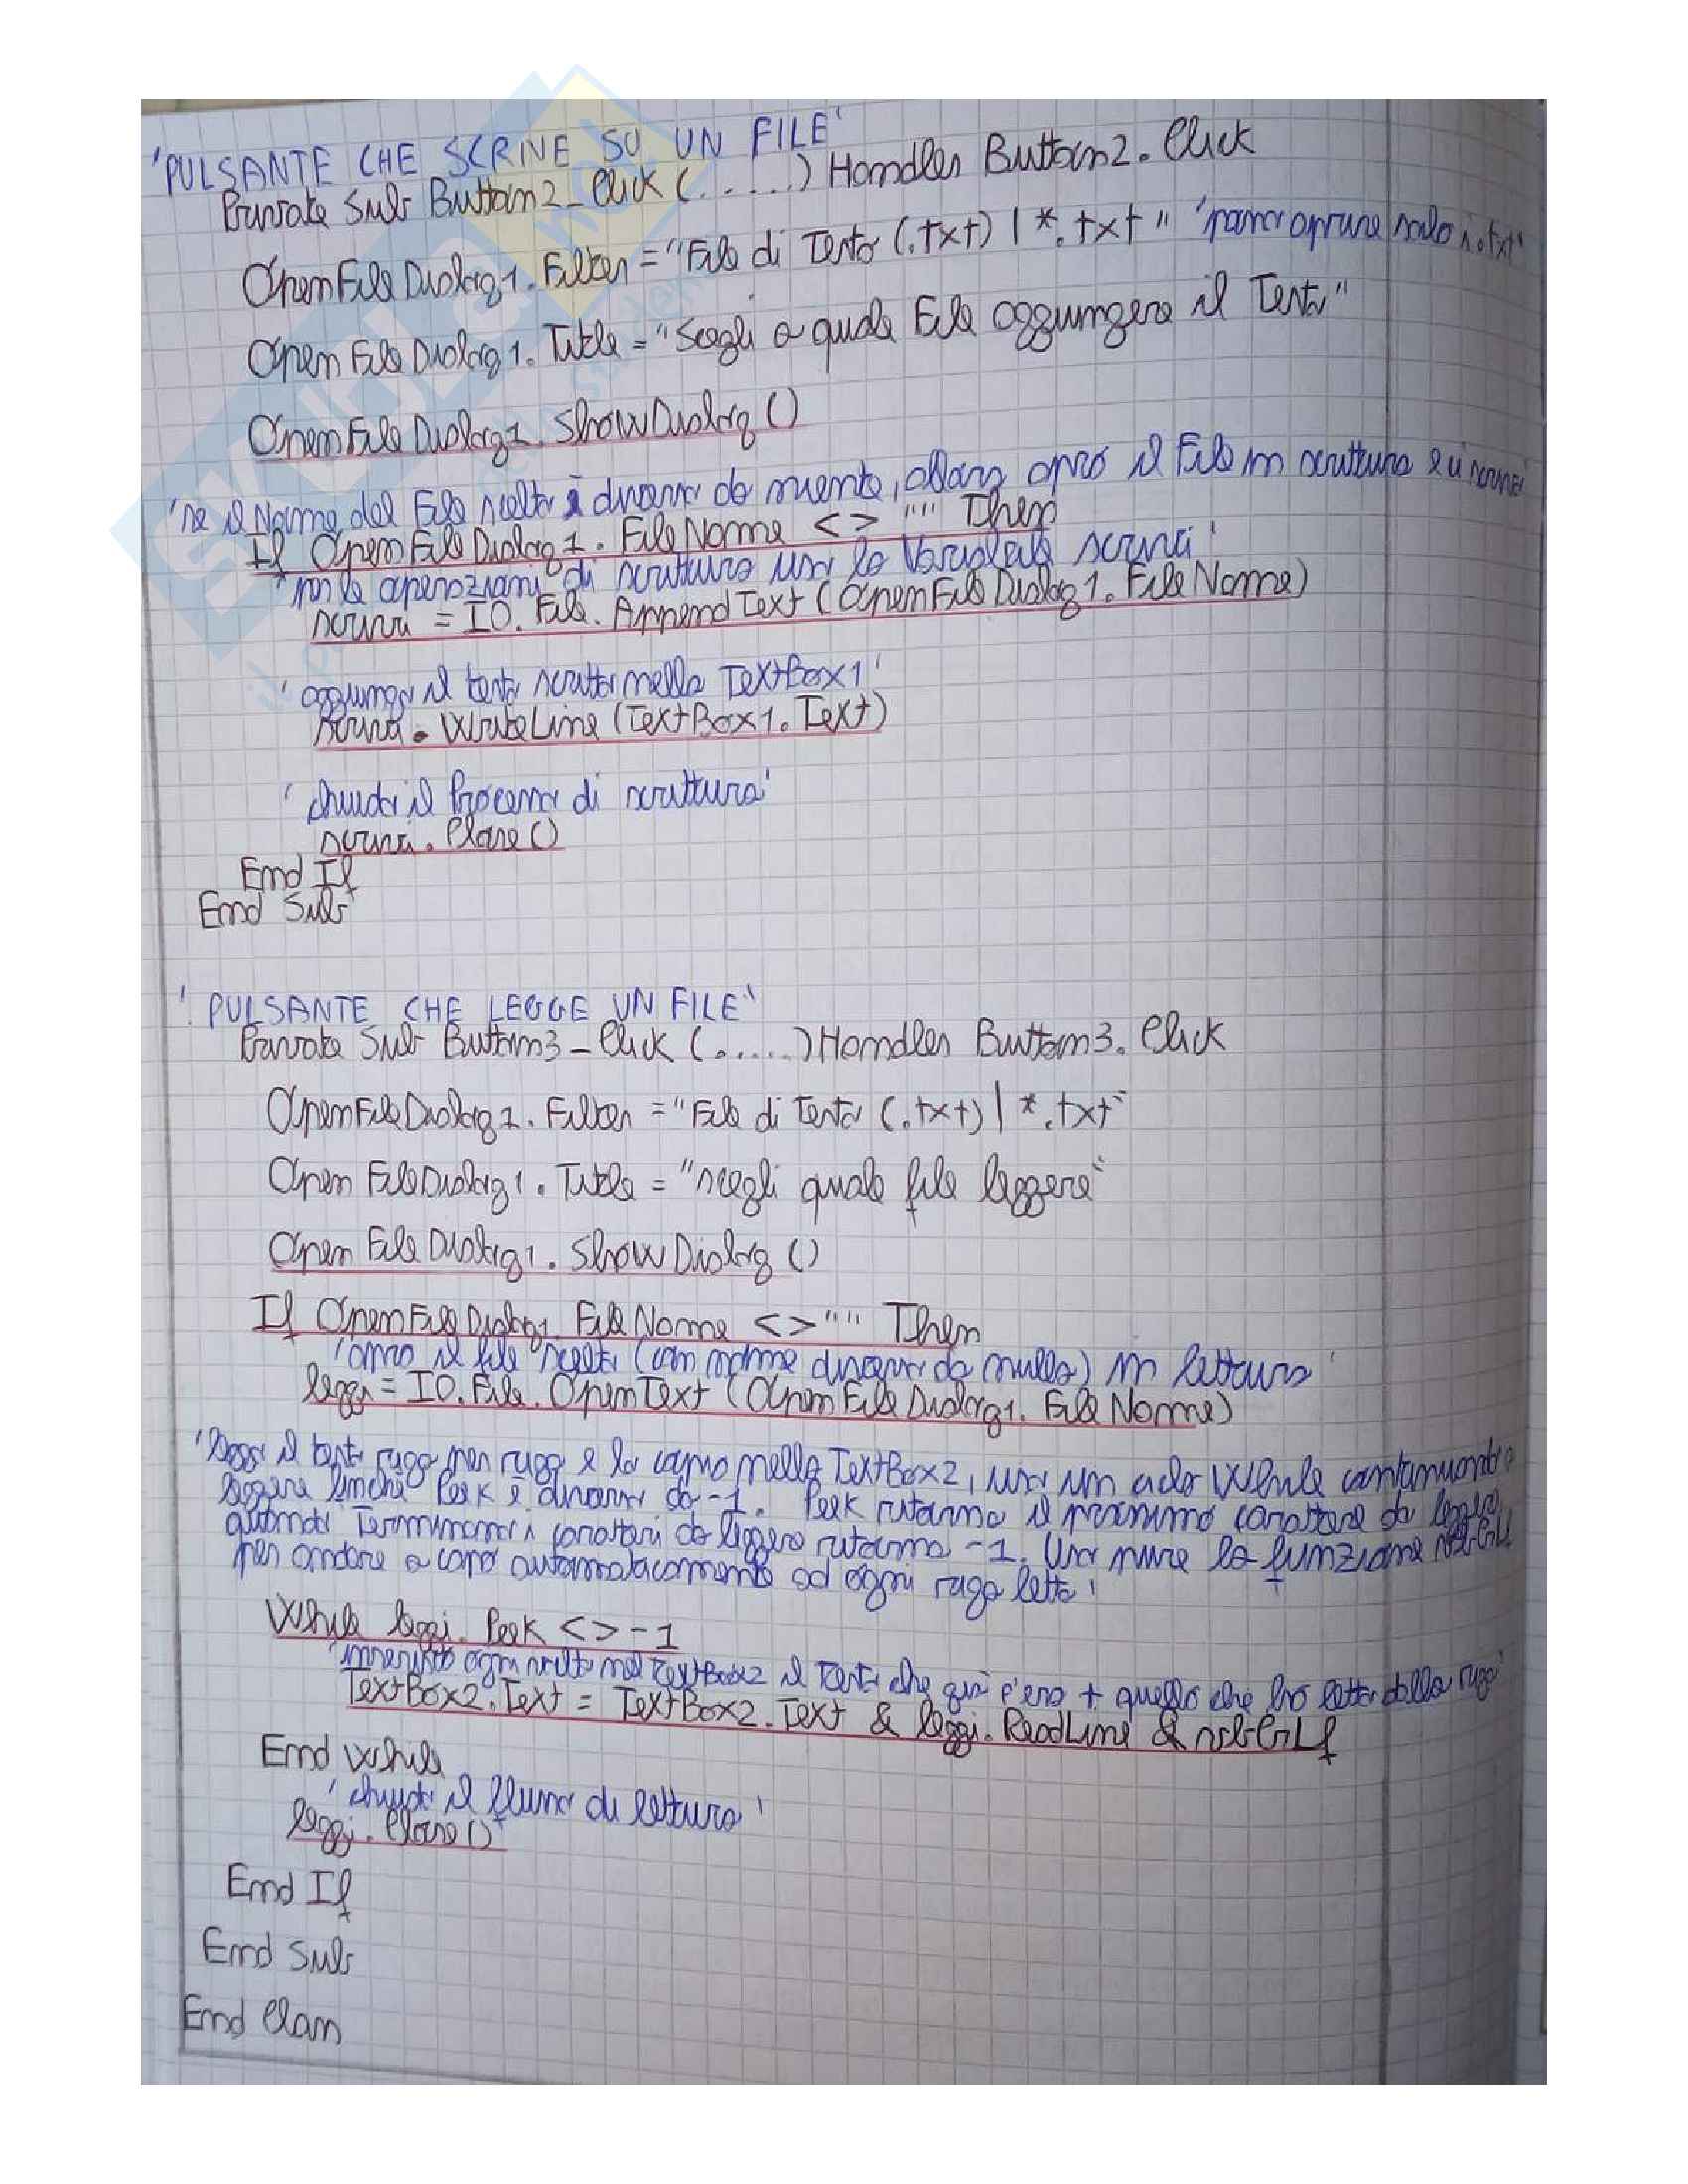 'PULSANTE CHE SCRIVE SU UN FILE'
Private Sub Button2_Click (.....) Handles Button2.Click
OpenFileDialog1.Filter = "File di Testo (.txt) | *.txt" 'posso aprire solo i .txt'
OpenFileDialog1.Title = "Scegli a quale File aggiungere il Testo"
OpenFileDialog1.ShowDialog()
'se il Nome del File scelto è diverso da niente, allora apro il File in scrittura e ci scrivo'
If OpenFileDialog1.FileName <> "" Then
'per le operazioni di scrittura uso la Variabile scrivi'
scrivi = IO.File.AppendText (OpenFileDialog1.FileName)
'aggiungo il testo scritto nella TextBox1'
scrivi.WriteLine (TextBox1.Text)
'chiudo il Processo di scrittura'
scrivi.Close()
End If
End Sub
'PULSANTE CHE LEGGE UN FILE'
Private Sub Button3_Click (.....) Handles Button3.Click
OpenFileDialog1.Filter = "File di Testo (.txt) | *.txt"
OpenFileDialog1.Title = "scegli quale file leggere"
OpenFileDialog1.ShowDialog()
If OpenFileDialog1.FileName <> "" Then
'apro il file scelto (con nome diverso da nullo) in lettura'
leggi = IO.File.OpenText (OpenFileDialog1.FileName)
'leggo il testo riga per riga e lo copio nella TextBox2, uso un ciclo While continuando a
leggere finché Peek è diverso da -1. Peek ritorna il prossimo carattere da leggere,
quando Terminano i caratteri da leggere ritorna -1. Uso pure la funzione vbCrLf
per andare a capo automaticamente ad ogni riga letta'
While leggi.Peek <> -1
'inserisco ogni volta nel TextBox2 il testo che già c'era + quello che ho letto dalla riga'
TextBox2.Text = TextBox2.Text & leggi.ReadLine & vbCrLf
End While
'chiudo il flusso di lettura'
leggi.Close()
End If
End Sub
End Class